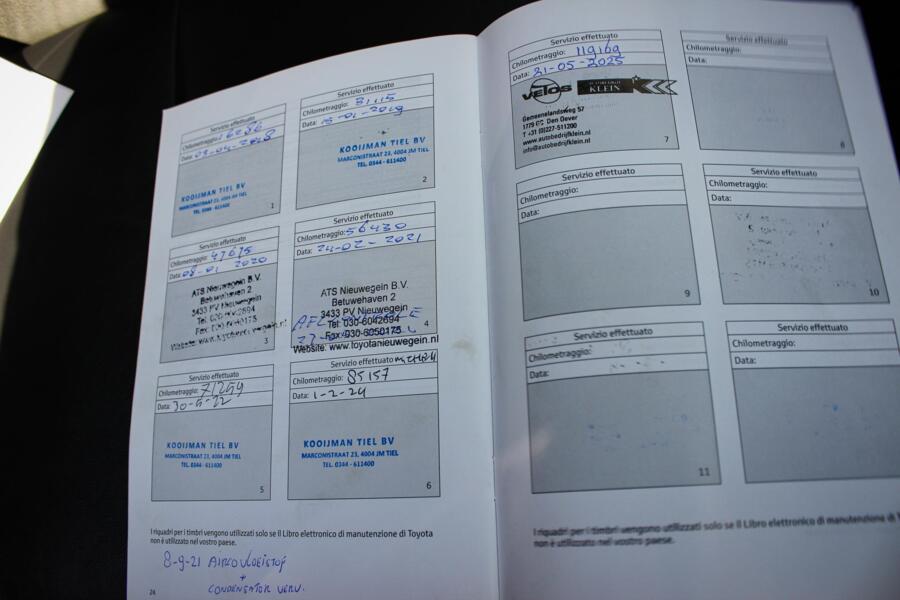 Servizio effettuato
Chilometraggio: 16286
Data:
KOOIJMAN TIEL BV
MARCONISTRAAT 23, 4004 JM TIEL
TEL. 0344 - 611400
1
Servizio effettuato
Chilometraggio: 31115
Data: 15-01-2019
KOOIJMAN TIEL BV
MARCONISTRAAT 23, 4004 JM TIEL
TEL. 0344 - 611400
2
Servizio effettuato
Chilometraggio: 47675
Data: 08-01 2020
ATS Nieuwegein B.V.
Betuwehaven 2
3433 PV Nieuwegein
Tel: 030-6042694
Fax: 030-6050175
Website: www.toyotanieuwegein.nl
3
Servizio effettuato
Chilometraggio: 56430
Data: 24-02-2021
ATS Nieuwegein B.V.
Betuwehaven 2
3433 PV Nieuwegein
Tel: 030-6042694
Fax: 030-6050175
Website: www.toyotanieuwegein.nl
4
Servizio effettuato
Chilometraggio: 71259
Data: 30-5-22
KOOIJMAN TIEL BV
MARCONISTRAAT 23, 4004 JM TIEL
TEL. 0344 - 611400
5
Servizio effettuato
Chilometraggio: 85157
Data: 1-2-24
KOOIJMAN TIEL BV
MARCONISTRAAT 23, 4004 JM TIEL
TEL. 0344 - 611400
6
I riquadri per i timbri vengono utilizzati solo se il Libro elettronico di manutenzione di Toyota
non è utilizzato nel vostro paese.
8-9-21 AIRCO VLOEISTOF
+
CONDENSATOR VERV.
24
Servizio effettuato
Chilometraggio: 119169
Data: 21-05-2025
velos
KLEIN
Gemeenelandsweg 57
1779 Den Oever
T +31 (0)227-511200
www.autobedrijfklein.nl
info@autobedrijfklein.nl
7
Servizio effettuato
Chilometraggio:
Data:
8
Servizio effettuato
Chilometraggio:
Data:
9
Servizio effettuato
Chilometraggio:
Data:
10
Servizio effettuato
Chilometraggio:
Data:
11
Servizio effettuato
Chilometraggio:
Data:
I riquadri per i timbri vengono utilizzati solo se il Libro elettronico di manutenzione di
non è utilizzato nel vostro paese.